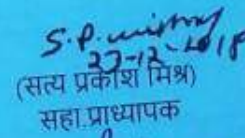 S.P. Mishra
27-12-2018
(सत्य प्रकाश मिश्र)
सहा.प्राध्यापक